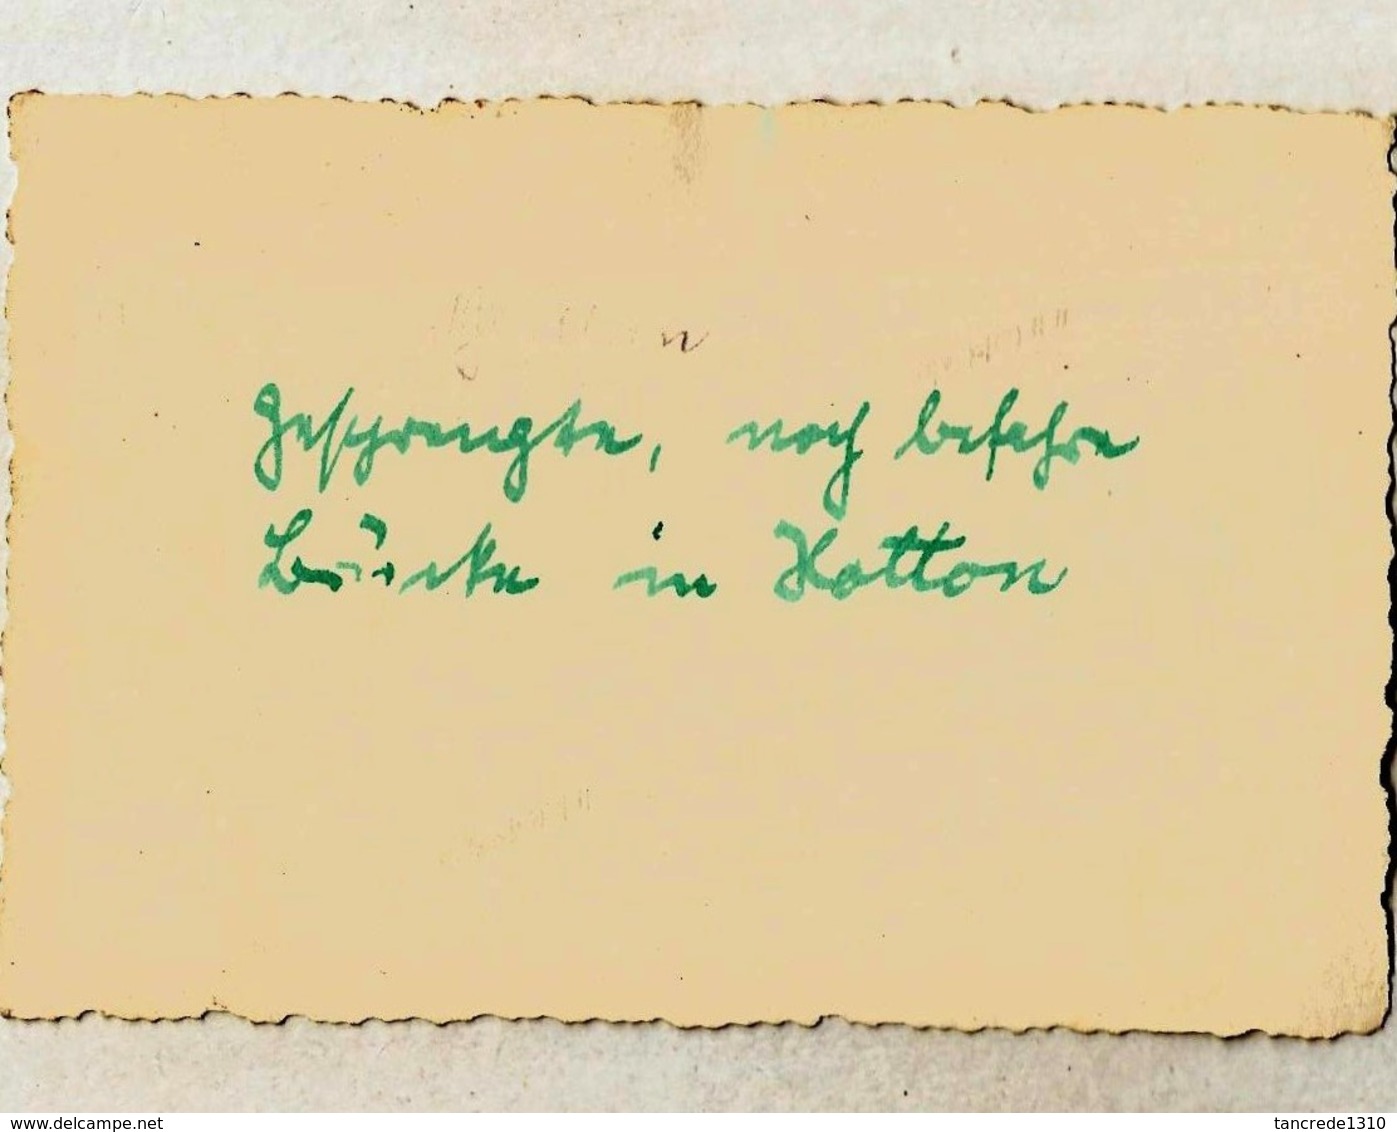 Gesprengte, noch befahre
Brücke in Hotton
www.delcampe.net
tancrede1310